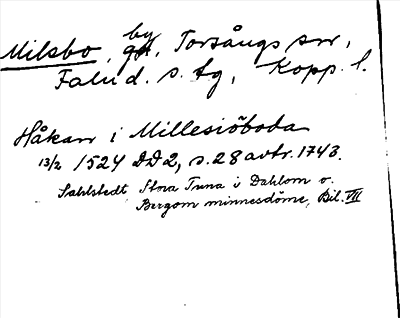 by
Milsbo, gd, Torsångs sn,
Falu d. s. tg, Kopp. l.
Håkan i Millesiöboda
13/2 1524 DD2, s. 28 avtr. 1743.
Sahlstedt, Stora Tuna i Dahlom o.
Bergom minnesdöme, Bil. VII